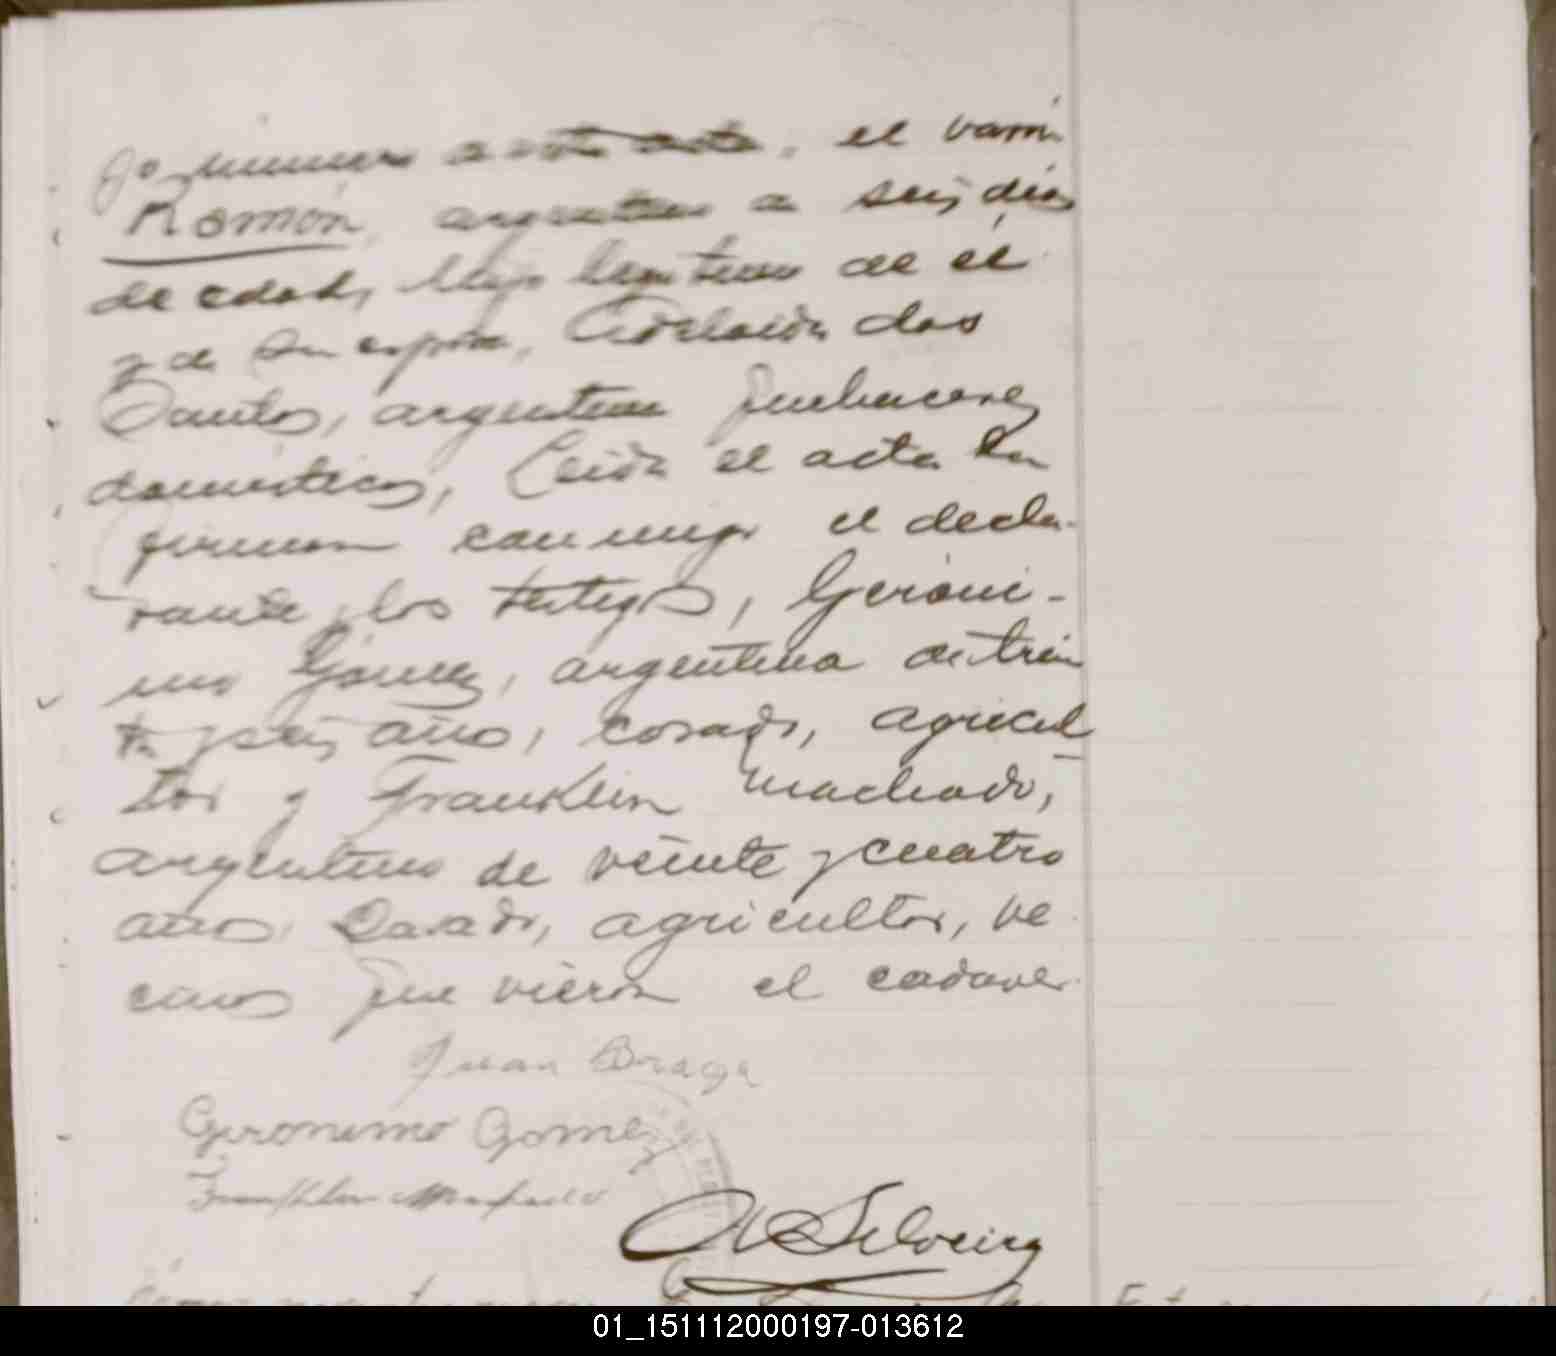 go numero a este acto, el varón
Ramón, argentino a seis días
de edad, hijo legítimo de él
y de su esposa, Adelaida dos
Santos, argentina quehaceres
domésticos, Leída el acta la
firman conmigo el decla-
rante, los testigos, Geróni-
mo Gómez, argentino de trein
ta y seis años, casado, agricul
tor y Franklin Machado,
argentino de veinte y cuatro
años, casado, agricultor, ve
cinos que vieron el cadaver
Juan Braga
Geronimo Gomez
Franklin Machado
Silveira
01_151112000197-013612